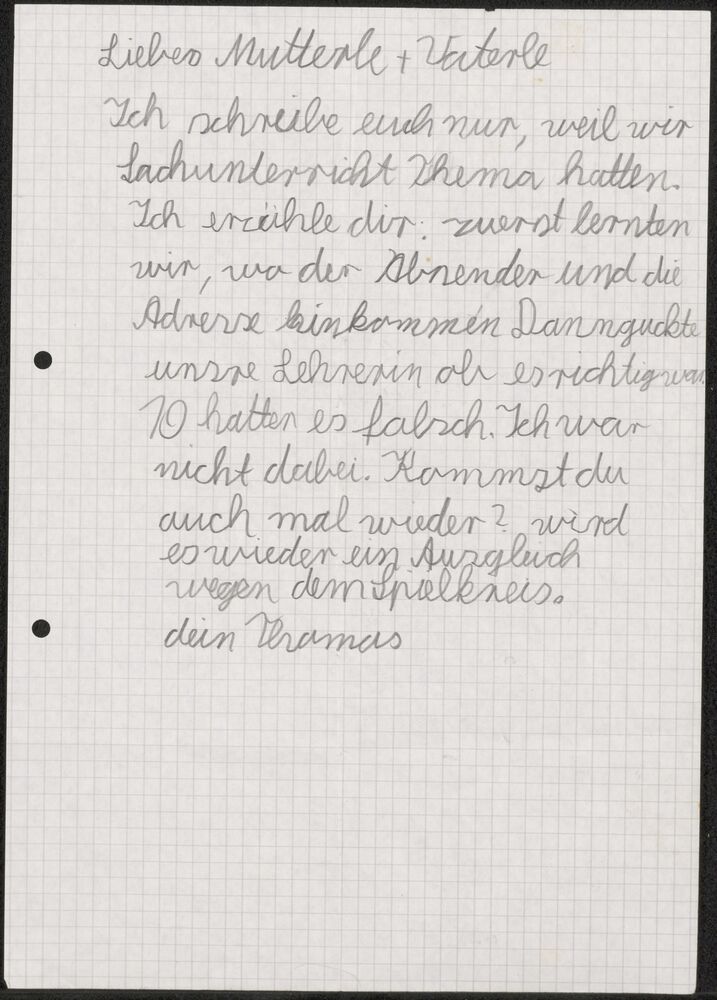 Liebes Mutterle + Vaterle
Ich schreibe euch nur, weil wir
Sachunterricht Thema hatten.
Ich erzähle dir: zuerst lernten
wir, wo der Absender und die
Adresse hinkommen Dann guckte
unsre Lehrerin ob es richtig war.
10 hatten es falsch. Ich war
nicht dabei. Kommst du
auch mal wieder? wird
es wieder ein Ausgleich
wegen dem Spielkreis.
dein Thomas